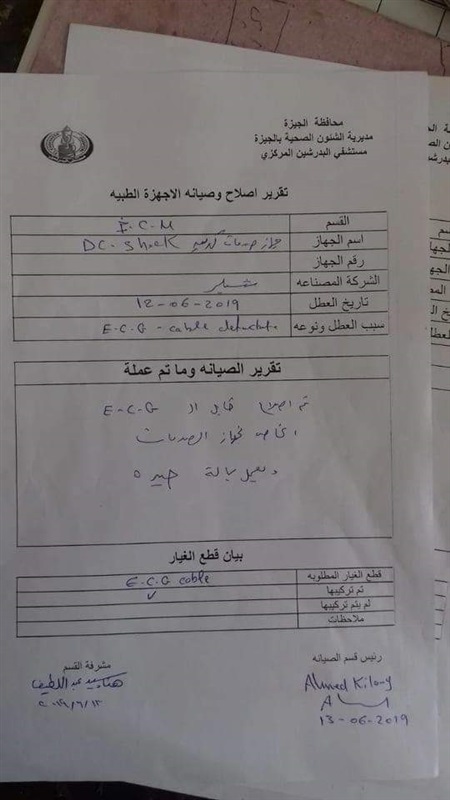 محافظة الجيزة
مديرية الشئون الصحية بالجيزة
مستشفي البدرشين المركزي
تقرير اصلاح وصيانه الاجهزة الطبيه
القسم E.C.M
اسم الجهاز جهاز صدمات DC. Shock
رقم الجهاز
الشركة المصناعه شيلر
تاريخ العطل 12-06-2019
سبب العطل ونوعه E.C.G - cable
تقرير الصيانه وما تم عملة
تم اصلاح كابل ال E.C.G
الخاص بجهاز الصدمات
ويعمل بحالة جيده
بيان قطع الغيار
قطع الغيار المطلوبه E.C.G cable
تم تركيبها ✓
لم يتم تركيبها
ملاحظات
رئيس قسم الصيانه
مشرفة القسم
Ahmed
هناء سيد عبد اللطيف
13-06-2019
٢٠١٩/٦/١٣